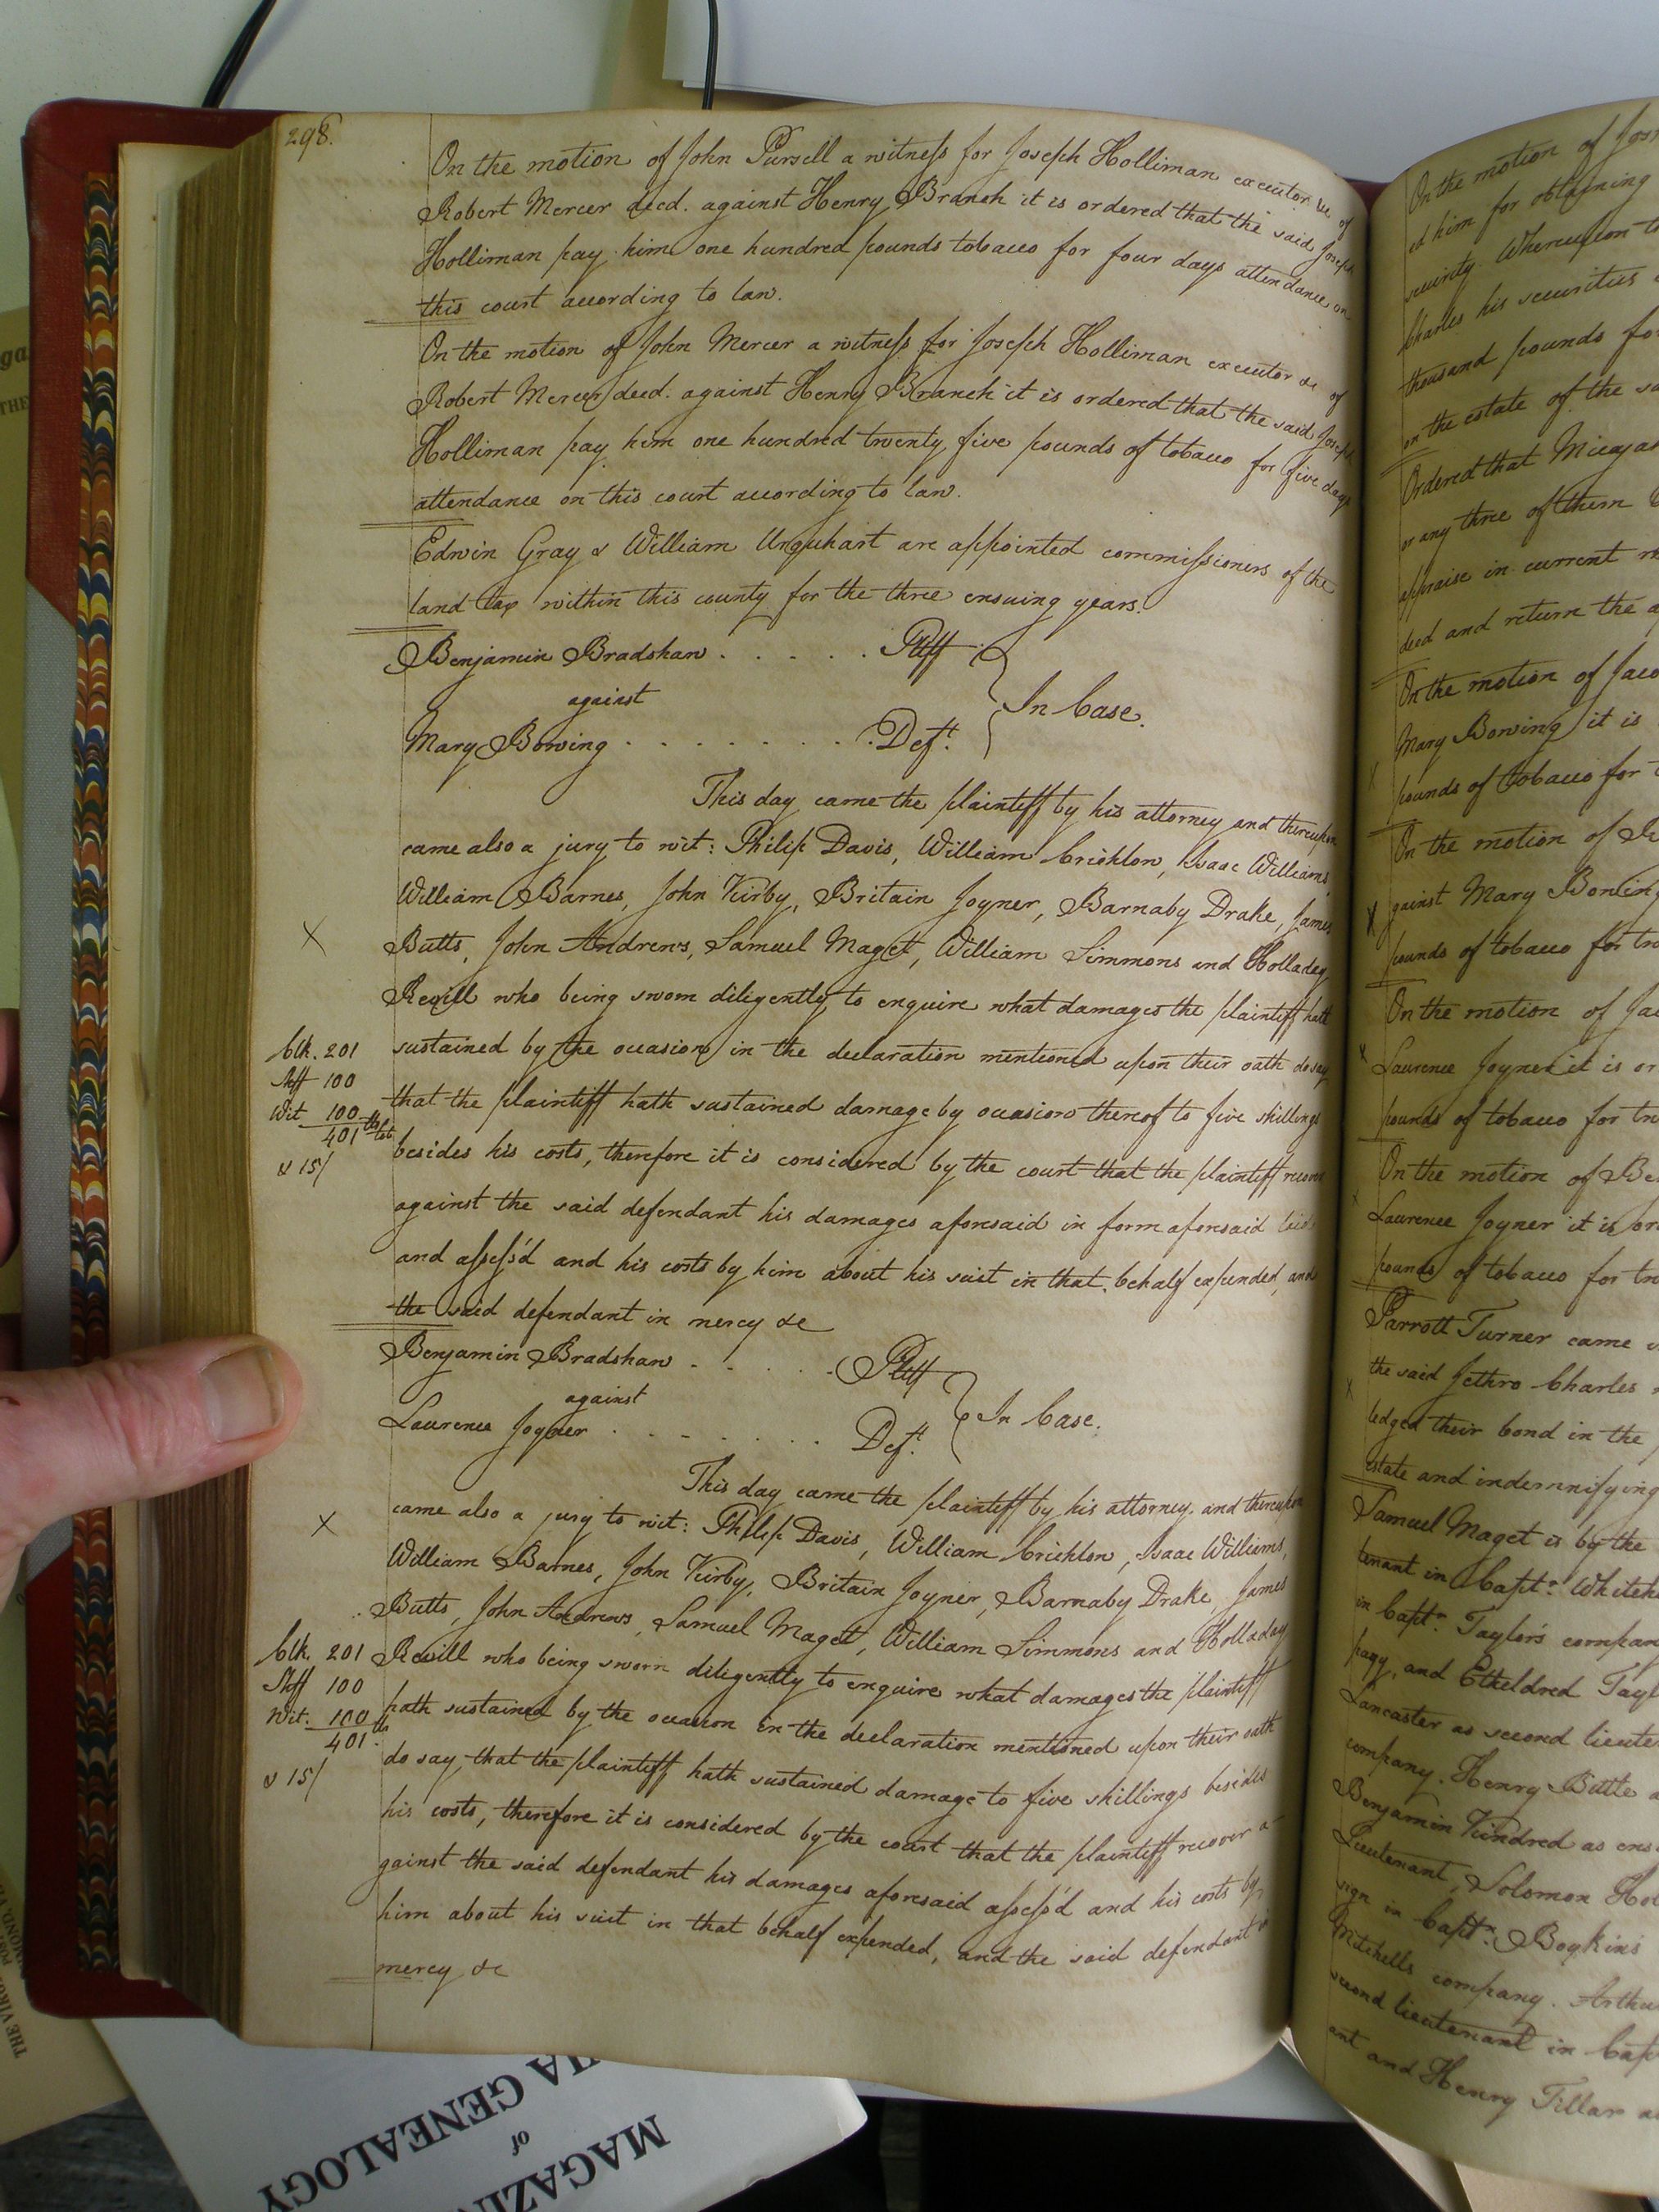 298.
On the motion of John Pursell a witness for Joseph Holliman executor &c of
Robert Mercer decd. against Henry Branch it is ordered that the said Joseph
Holliman pay him one hundred pounds tobacco for four days attendance on
this court according to law.
On the motion of John Mercer a witness for Joseph Holliman executor &c of
Robert Mercer decd. against Henry Branch it is ordered that the said Joseph
Holliman pay him one hundred twenty five pounds of tobacco for five days
attendance on this court according to law.
Edwin Gray & William Urquhart are appointed commissioners of the
land tax within this county for the three ensuing years.
Benjamin Bradshaw . . . . . Pltff
against
In Case.
Mary Bowing . . . . . . . . Deft.
This day came the plaintiff by his attorney and thereupon
came also a jury to wit: Philip Davis, William Crichlow, Isaac Williams,
William Barnes, John Kirby, Britain Joyner, Barnaby Drake, James
X
Butts, John Andrews, Samuel Maget, William Simmons and Holladay
Revill who being sworn diligently to enquire what damages the plaintiff hath
Clk. 201
sustained by the occasion in the declaration mentioned upon their oath do say
Shff 100
that the plaintiff hath sustained damage by occasion thereof to five shillings
Wit. 100
401 lbs tob.
besides his costs, therefore it is considered by the court that the plaintiff recover
& 15/
against the said defendant his damages aforesaid in form aforesaid
and assess'd and his costs by him about his suit in that behalf expended, and
the said defendant in mercy &c
Benjamin Bradshaw . . . . . Pltff
against
In Case.
Laurence Joyner . . . . . . . Deft.
This day came the plaintiff by his attorney and thereupon
X
came also a jury to wit: Philip Davis, William Crichlow, Isaac Williams,
William Barnes, John Kirby, Britain Joyner, Barnaby Drake, James
Butts, John Andrews, Samuel Maget, William Simmons and Holladay
Clk. 201
Revill who being sworn diligently to enquire what damages the plaintiff
Shff 100
hath sustained by the occasion in the declaration mentioned upon their oath
Wit. 100
401 lbs
do say that the plaintiff hath sustained damage to five shillings besides
& 15/
his costs, therefore it is considered by the court that the plaintiff recover a-
gainst the said defendant his damages aforesaid assess'd and his costs by
him about his suit in that behalf expended, and the said defendant in
mercy &c
On the motion of
ed him for obtaining
security. Whereupon
Charles his securities
thousand pounds
on the estate of the
Ordered that
or any three of them
appraise in current
decd and return the
On the motion of
Mary Bowing it is
pounds of tobacco for
On the motion of
X
gainst Mary Bowing
pounds of tobacco for
On the motion of
X
Laurence Joyner it is
pounds of tobacco for
On the motion of
Laurence Joyner it is
pounds of tobacco for
Parrott Turner came
the said Jethro Charles
ledged their bond in the
estate and indemnifying
Samuel Maget is by the
tenant in Captn.
in Captn. Taylor's
pany, and Etheldred
Lancaster as second
company. Henry Butts
Benjamin Kindred as
Lieutenant, Solomon
sign in Captn. Boykins
Mitchells company.
second lieutenant in
ant and Henry Tillar
MAGAZINE
of
GENEALOGY